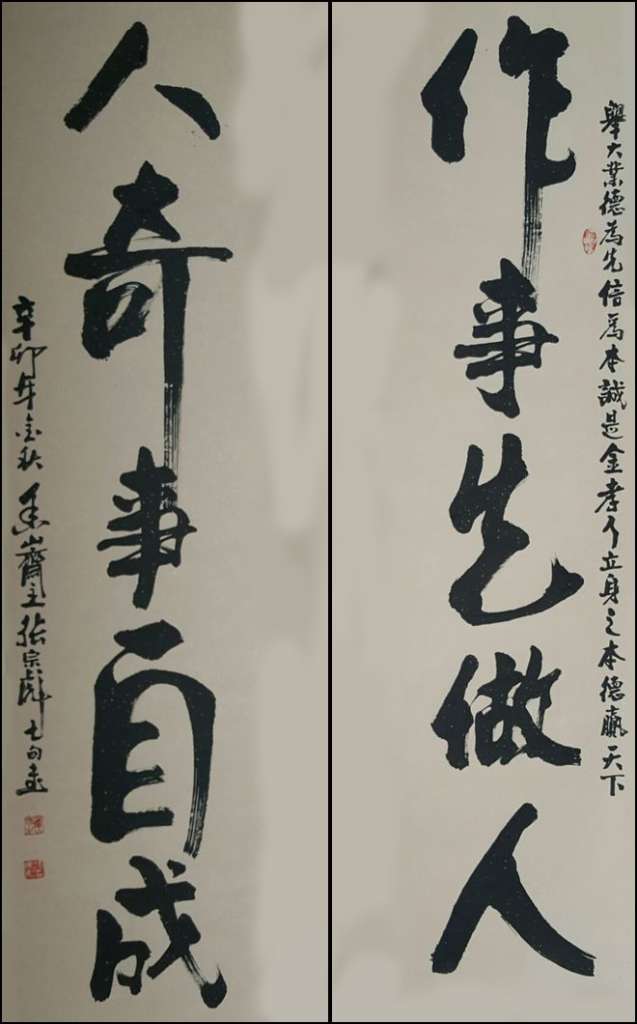 舉大業德為先信為本誠是金孝乃立身之本德贏天下
作事先做人
人奇事自成
辛卯年金秋山齋主張宗彪七旬